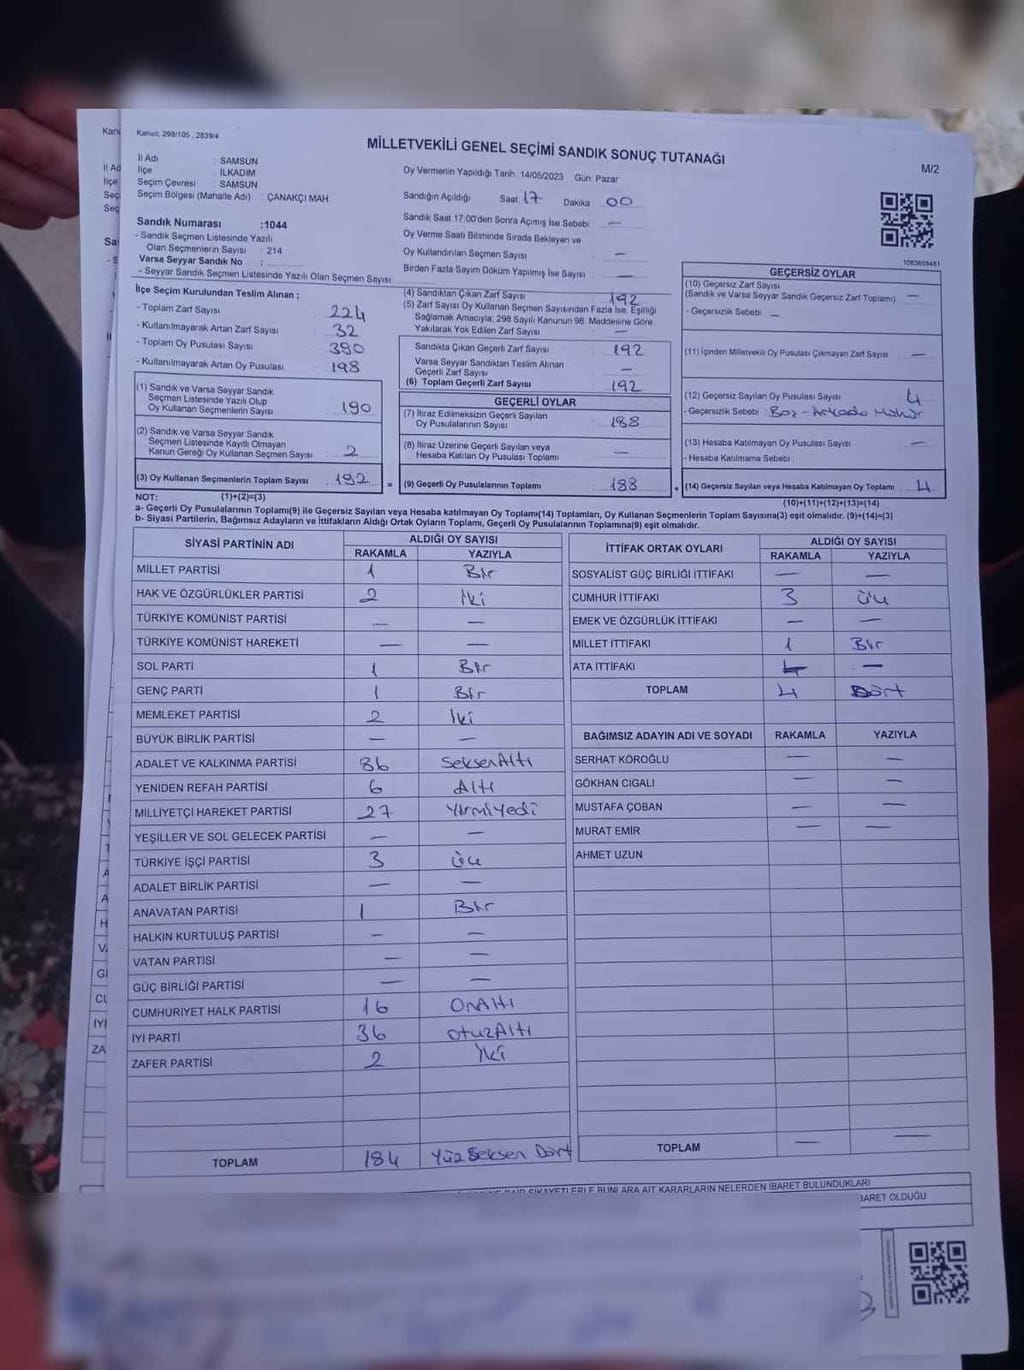 Kanun: 298/105, 2839/4
MİLLETVEKİLİ GENEL SEÇİMİ SANDIK SONUÇ TUTANAĞI
M/2
İl Adı : SAMSUN
İlçe : İLKADIM
Seçim Çevresi : SAMSUN
Seçim Bölgesi (Mahalle Adı) : ÇANAKÇI MAH.
Oy Vermenin Yapıldığı Tarih :14/05/2023 Gün: Pazar
Sandığın Açıldığı Saat: 17 Dakika : 00
Sandık Saat 17.00'den Sonra Açımış İse Sebebi : —
Oy Verme Saati Bitiminde Sırada Bekleyen ve
Oy Kullandırılan Seçmen Sayısı : —
Birden Fazla Sayım Döküm Yapılmış İse Sayısı : —
Sandık Numarası :1044
- Sandık Seçmen Listesinde Yazılı
Olan Seçmenlerin Sayısı : 214
Varsa Seyyar Sandık No :
- Seyyar Sandık Seçmen Listesinde Yazılı Olan Seçmen Sayısı:
1083668481
İlçe Seçim Kurulundan Teslim Alınan ;
- Toplam Zarf Sayısı : 224
- Kullanılmayarak Artan Zarf Sayısı : 32
- Toplam Oy Pusulası Sayısı : 390
- Kullanılmayarak Artan Oy Pusulası : 198
(1) Sandık ve Varsa Seyyar Sandık
Seçmen Listesinde Yazılı Olup
Oy Kullanan Seçmenlerin Sayısı : 190
(2) Sandık ve Varsa Seyyar Sandık
Seçmen Listesinde Kayıtlı Olmayan
Kanun Gereği Oy Kullanan Seçmen Sayısı : 2
(3) Oy Kullanan Seçmenlerin Toplam Sayısı : 192
(4) Sandıktan Çıkan Zarf Sayısı : 192
(5) Zarf Sayısı Oy Kullanan Seçmen Sayısından Fazla İse, Eşitliği
Sağlamak Amacıyla, 298 Sayılı Kanunun 98. Maddesine Göre
Yakılarak Yok Edilen Zarf Sayısı : —
Sandıkta Çıkan Geçerli Zarf Sayısı : 192
Varsa Seyyar Sandıktan Teslim Alınan
Geçerli Zarf Sayısı : —
(6) Toplam Geçerli Zarf Sayısı : 192
GEÇERLİ OYLAR
(7) İtiraz Edilmeksizin Geçerli Sayılan
Oy Pusulalarının Sayısı : 188
(8) İtiraz Üzerine Geçerli Sayılan veya
Hesaba Katılan Oy Pusulası Toplamı : —
= (9) Geçerli Oy Pusulalarının Toplamı : 188
GEÇERSİZ OYLAR
(10) Geçersiz Zarf Sayısı
(Sandık ve Varsa Seyyar Sandık Geçersiz Zarf Toplamı) : —
- Geçersizlik Sebebi : —
(11) İçinden Milletvekili Oy Pusulası Çıkmayan Zarf Sayısı : —
(12) Geçersiz Sayılan Oy Pusulası Sayısı : 4
- Geçersizlik Sebebi : Boş - Arkada Mühür
(13) Hesaba Katılmayan Oy Pusulası Sayısı : —
- Hesaba Katılmama Sebebi :
+ (14) Geçersiz Sayılan veya Hesaba Katılmayan Oy Toplamı : 4
NOT: (1)+(2)=(3)
(10)+(11)+(12)+(13)=(14)
a- Geçerli Oy Pusulalarının Toplamı(9) ile Geçersiz Sayılan veya Hesaba katılmayan Oy Toplamı(14) Toplamları, Oy Kullanan Seçmenlerin Toplam Sayısına(3) eşit olmalıdır. (9)+(14)=(3)
b- Siyasi Partilerin, Bağımsız Adayların ve İttifakların Aldığı Ortak Oyların Toplamı, Geçerli Oy Pusulalarının Toplamına(9) eşit olmalıdır.
SİYASİ PARTİNİN ADI ALDIĞI OY SAYISI
RAKAMLA YAZIYLA
MİLLET PARTİSİ 1 Bir
HAK VE ÖZGÜRLÜKLER PARTİSİ 2 İki
TÜRKİYE KOMÜNİST PARTİSİ — —
TÜRKİYE KOMÜNİST HAREKETİ — —
SOL PARTİ 1 Bir
GENÇ PARTİ 1 Bir
MEMLEKET PARTİSİ 2 İki
BÜYÜK BİRLİK PARTİSİ — —
ADALET VE KALKINMA PARTİSİ 86 SeksenAltı
YENİDEN REFAH PARTİSİ 6 Altı
MİLLİYETÇİ HAREKET PARTİSİ 27 Yirmiyedi
YEŞİLLER VE SOL GELECEK PARTİSİ — —
TÜRKİYE İŞÇİ PARTİSİ 3 Üç
ADALET BİRLİK PARTİSİ — —
ANAVATAN PARTİSİ 1 Bir
HALKIN KURTULUŞ PARTİSİ — —
VATAN PARTİSİ — —
GÜÇ BİRLİĞİ PARTİSİ — —
CUMHURİYET HALK PARTİSİ 16 OnAltı
İYİ PARTİ 36 otuzAltı
ZAFER PARTİSİ 2 İki
TOPLAM 184 Yüz Seksen Dört
İTTİFAK ORTAK OYLARI ALDIĞI OY SAYISI
RAKAMLA YAZIYLA
SOSYALİST GÜÇ BİRLİĞİ İTTİFAKI — —
CUMHUR İTTİFAKI 3 Üç
EMEK VE ÖZGÜRLÜK İTTİFAKI — —
MİLLET İTTİFAKI 1 Bir
ATA İTTİFAKI —
TOPLAM 4 Dört
BAĞIMSIZ ADAYIN ADI VE SOYADI RAKAMLA YAZIYLA
SERHAT KÖROĞLU — —
GÖKHAN CIGALI — —
MUSTAFA ÇOBAN — —
MURAT EMİR — —
AHMET UZUN
TOPLAM — —
ŞİKAYETLERLE BUNLARA AİT KARARLARIN NELERDEN İBARET BULUNDUKLARI
İBARET OLDUĞU